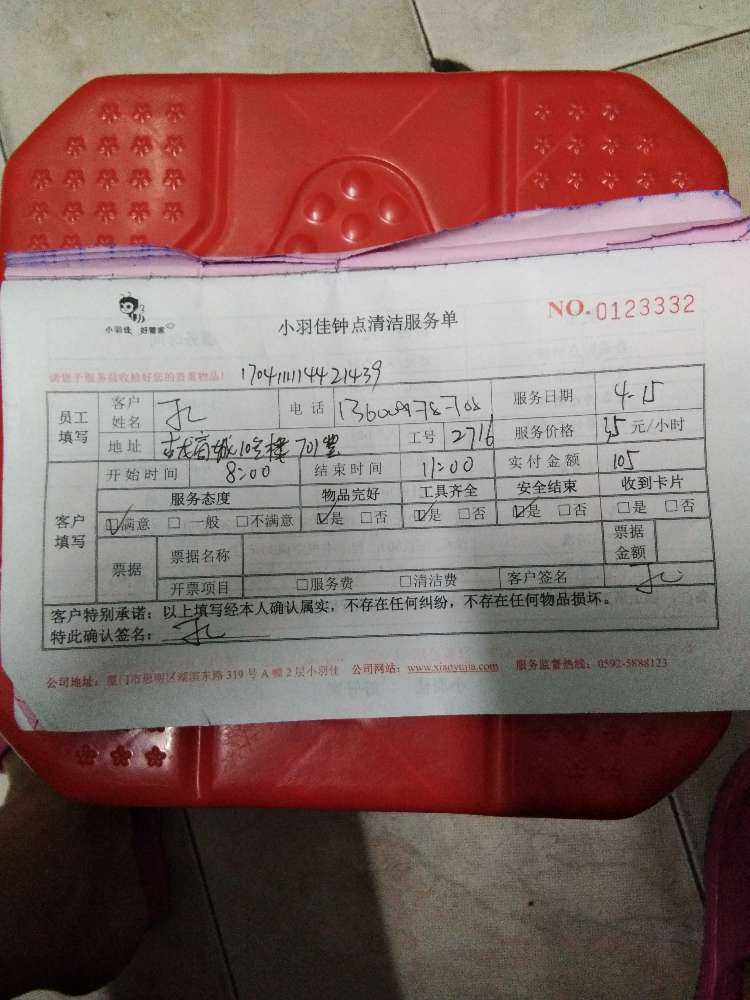 小羽佳 好管家
小羽佳钟点清洁服务单
NO.0123332
请您于服务前收拾好您的贵重物品!
1704111144421439
员工填写 客户姓名 电话 服务日期 4-15
地址 701 工号 2716 服务价格 35 元/小时
客户填写 开始时间 8:00 结束时间 11:00 实付金额 105
服务态度 物品完好 工具齐全 安全结束 收到卡片
☑满意 □一般 □不满意 ☑是 □否 ☑是 □否 ☑是 □否 □是 □否
票据 票据名称 票据金额
开票项目 □服务费 □清洁费 客户签名
客户特别承诺:以上填写经本人确认属实,不存在任何纠纷,不存在任何物品损坏。
特此确认签名:
公司地址:厦门市思明区湖滨东路 319 号 A 幢 2 层小羽佳 公司网站:www.xiaoyujia.com 服务监督热线:0592-5888123